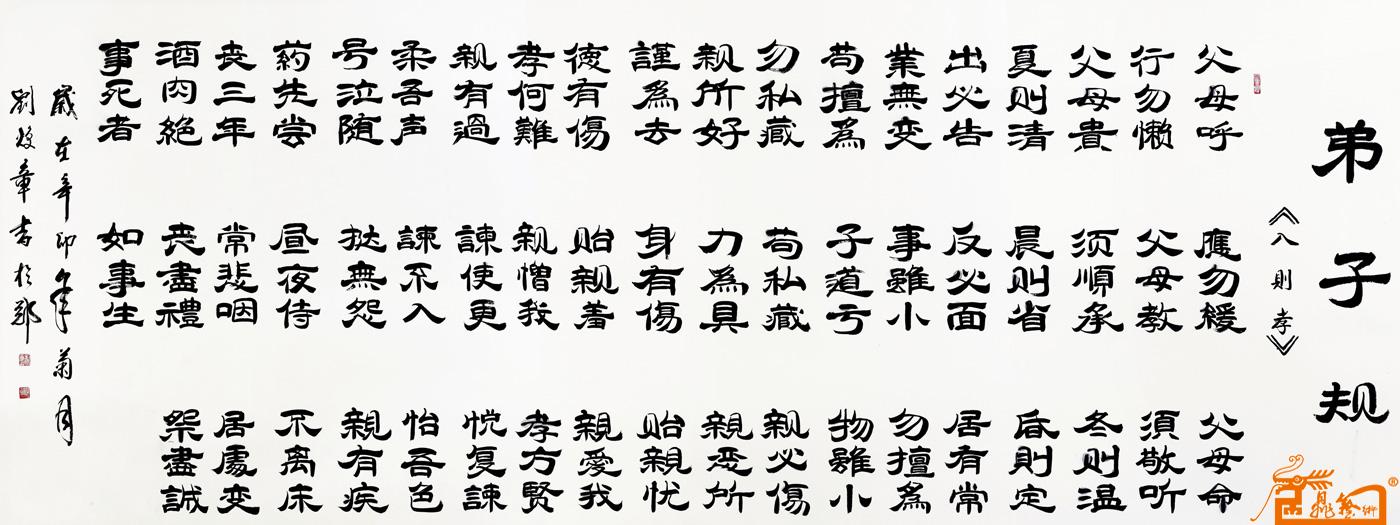 弟子规
《入則孝》
父母呼 應勿緩 父母命
行勿懶 父母教 須敬听
父母責 须順承 冬则温
夏则清 晨则省 昏則定
出必告 反必面 居有常
業無变 事雖小 勿擅為
苟擅為 子道亏 物雖小
勿私藏 苟私藏 亲必傷
親所好 力為具 親恶所
謹為去 身有傷 贻親忧
德有傷 贻亲羞 親愛我
孝何難 亲憎我 孝方賢
親有過 諫使更 悦复諫
柔吾声 諫不入 怡吾色
号泣随 挞無怨 親有疾
药先尝 昼夜侍 不离床
丧三年 常悲咽 居處变
酒肉絶 丧盡禮 祭盡誠
事死者 如事生
歲在辛卯年菊月
劉章书於郑